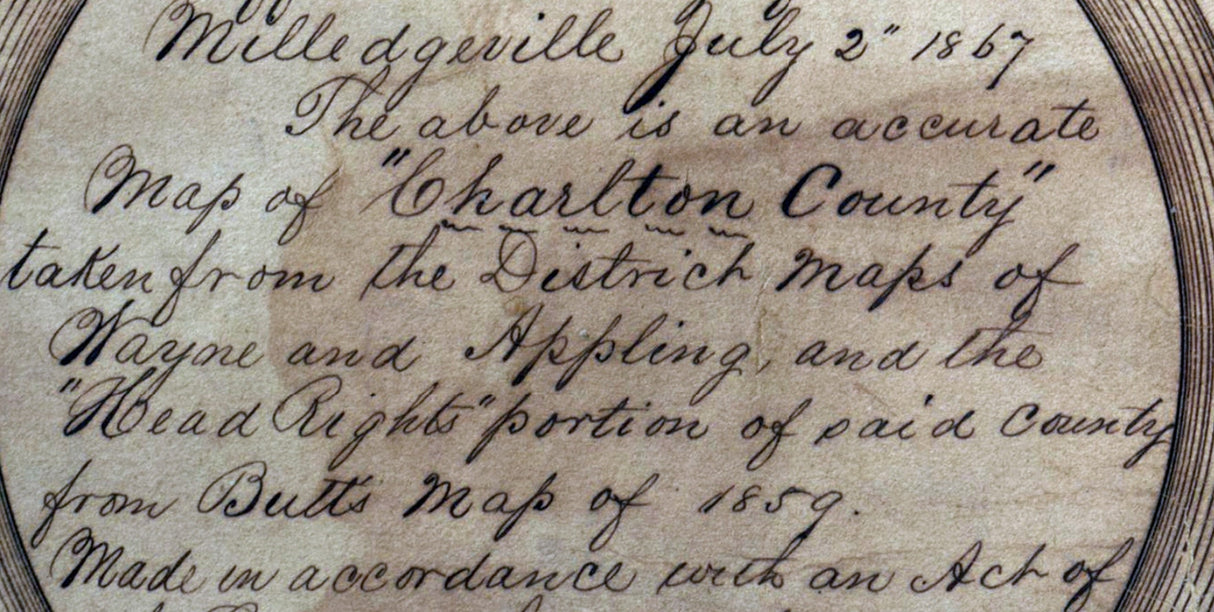 Milledgeville July 2" 1867
The above is an accurate
Map of "Charlton County"
taken from the District Maps of
Wayne and Appling, and the
"Head Rights" portion of said County
from Butts Map of 1859.
Made in accordance with an Act of